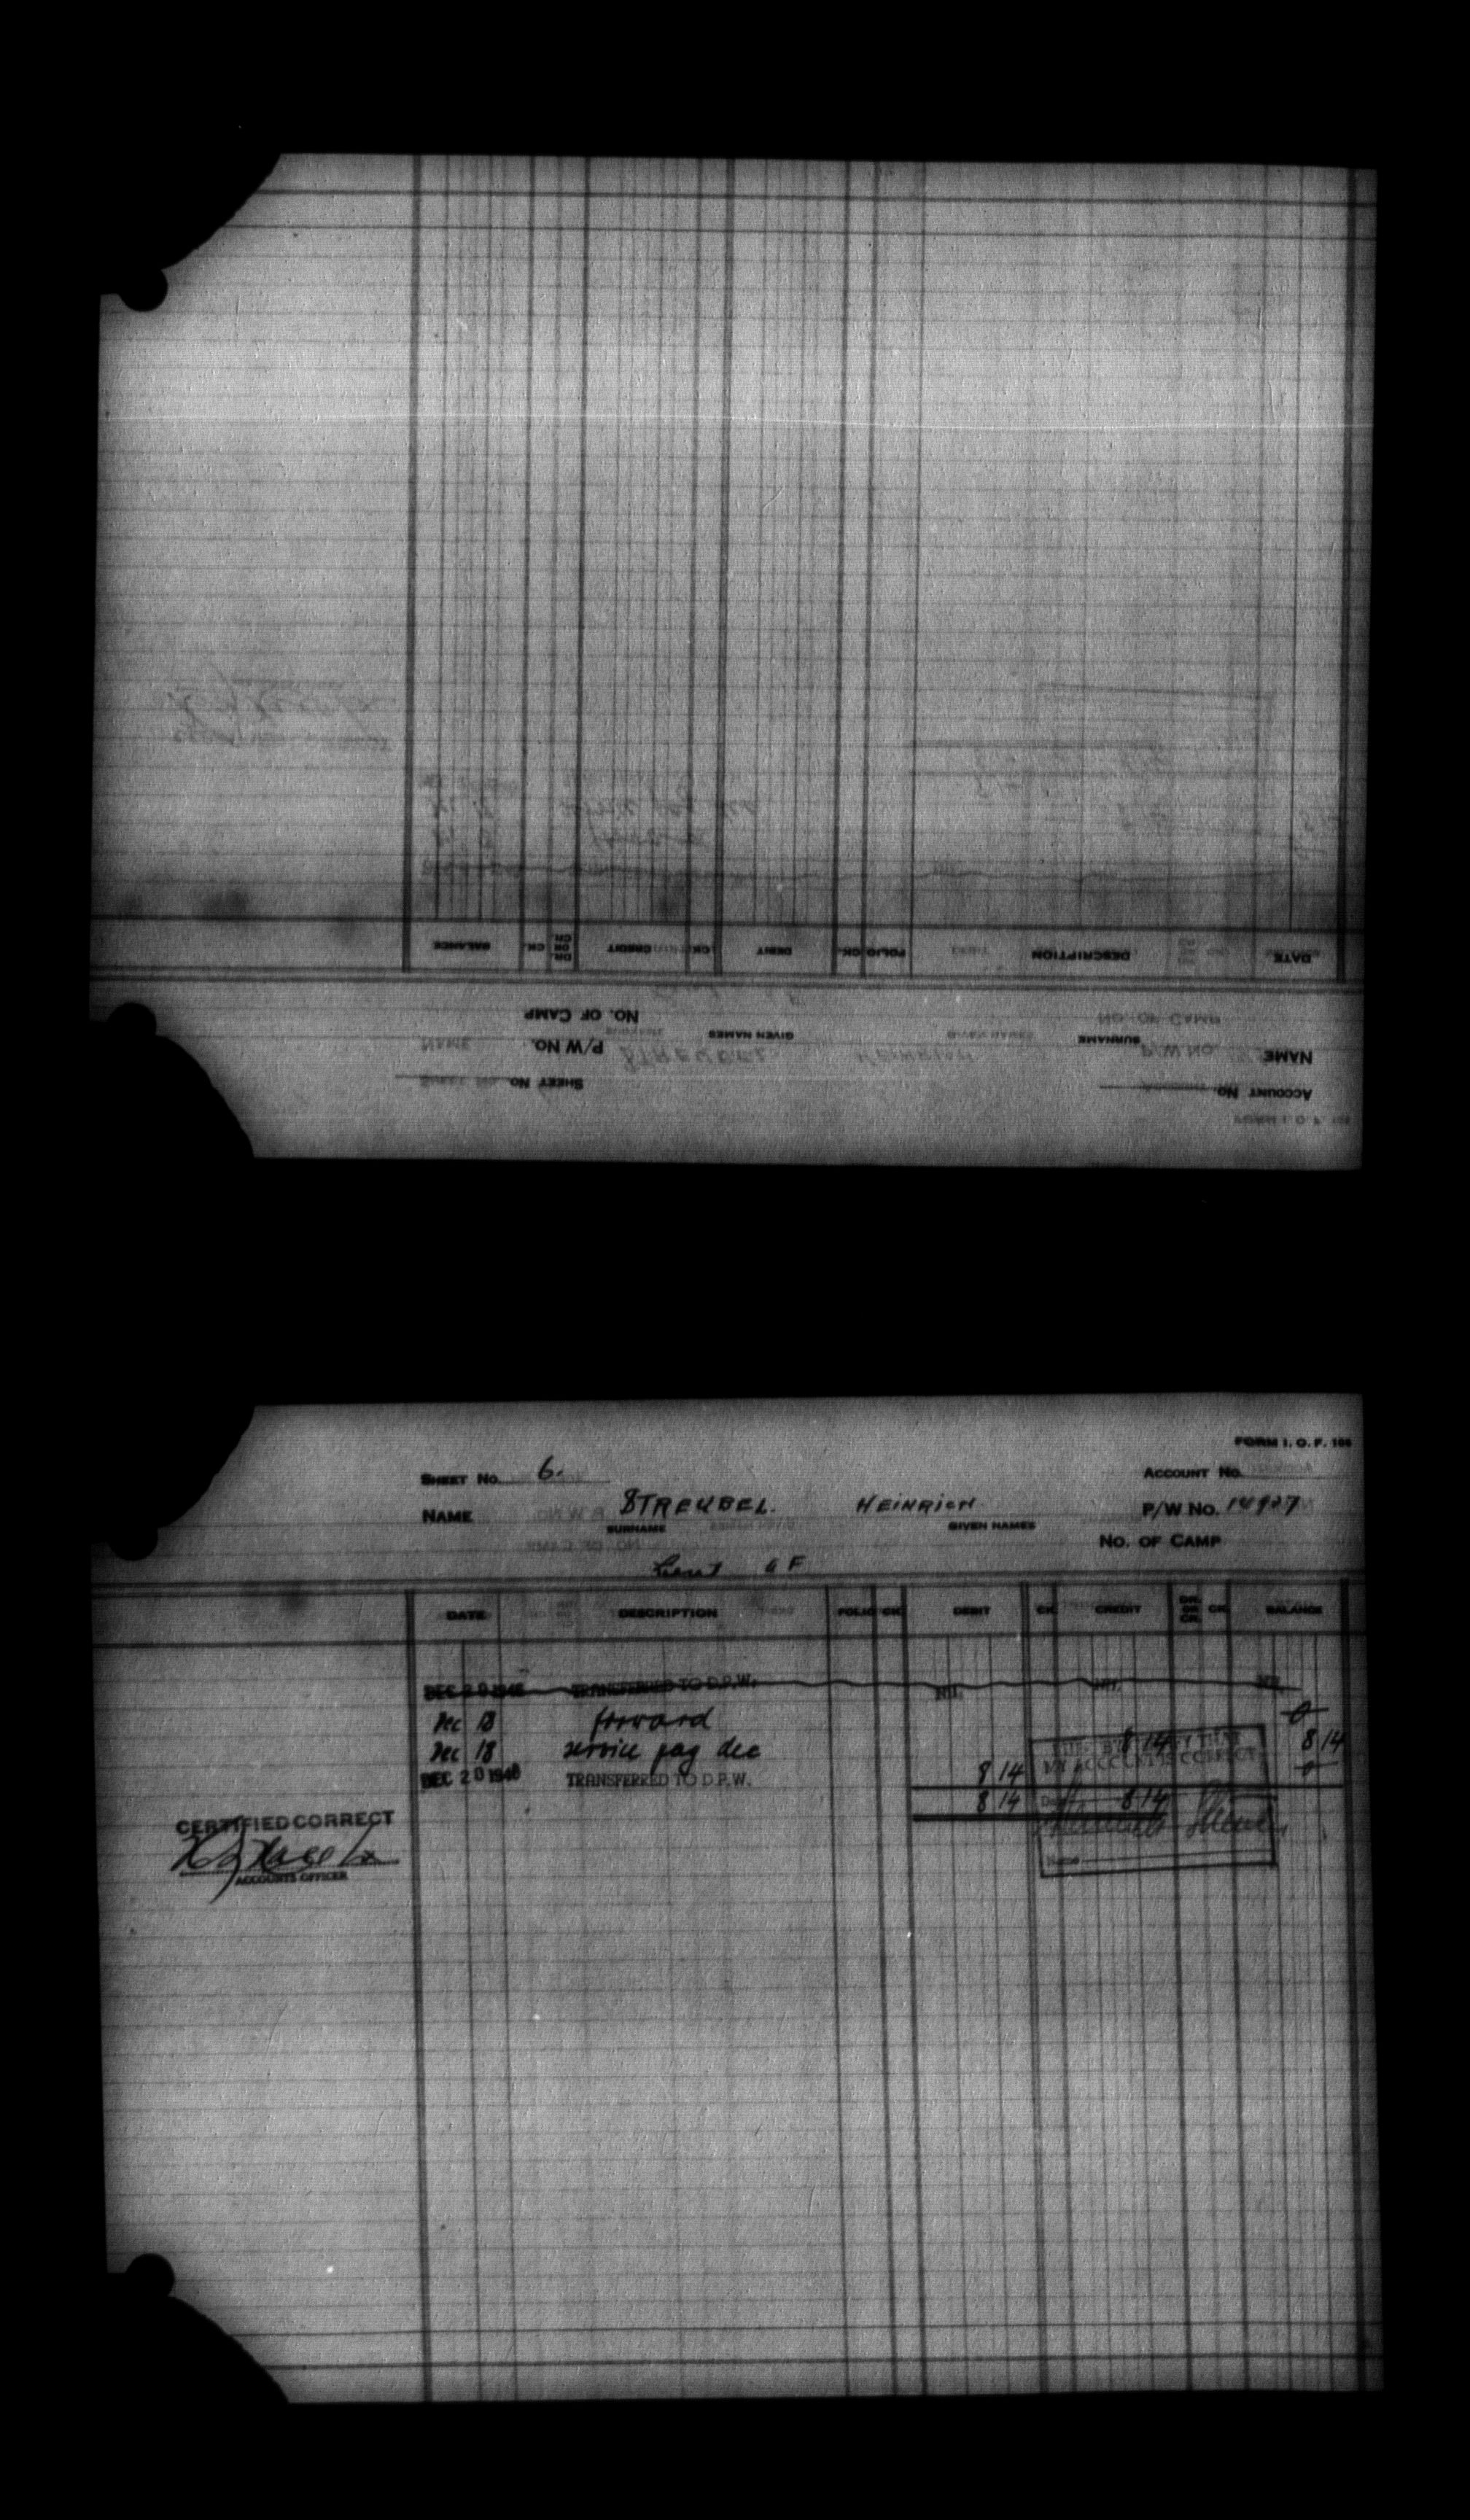 ACCOUNT No.
SHEET No.
NAME
SURNAME
GIVEN NAMES
P/W No.
No. OF CAMP
DATE DESCRIPTION FOLIO CK. DEBIT CK. CREDIT DR. OR CR. CK. BALANCE
FORM I. O. F. 106
SHEET No. 6.
ACCOUNT No.
NAME STREUBEL. HEINRICH
P/W No.
SURNAME GIVEN NAMES
No. OF CAMP
DATE DESCRIPTION FOLIO CK. DEBIT CK. CREDIT DR. OR CR. CK. BALANCE
DEC 20 1946 TRANSFERRED TO D.P.W. NIL NIL NIL
Dec 18 forward 0
Dec 18 service pay dec 8 14 8 14
DEC 20 1946 TRANSFERRED TO D.P.W. 8 14 0
8 14 8 14
THAT
MY ACCOUNT IS CORRECT
Date
Name
CERTIFIED CORRECT
ACCOUNTS OFFICER